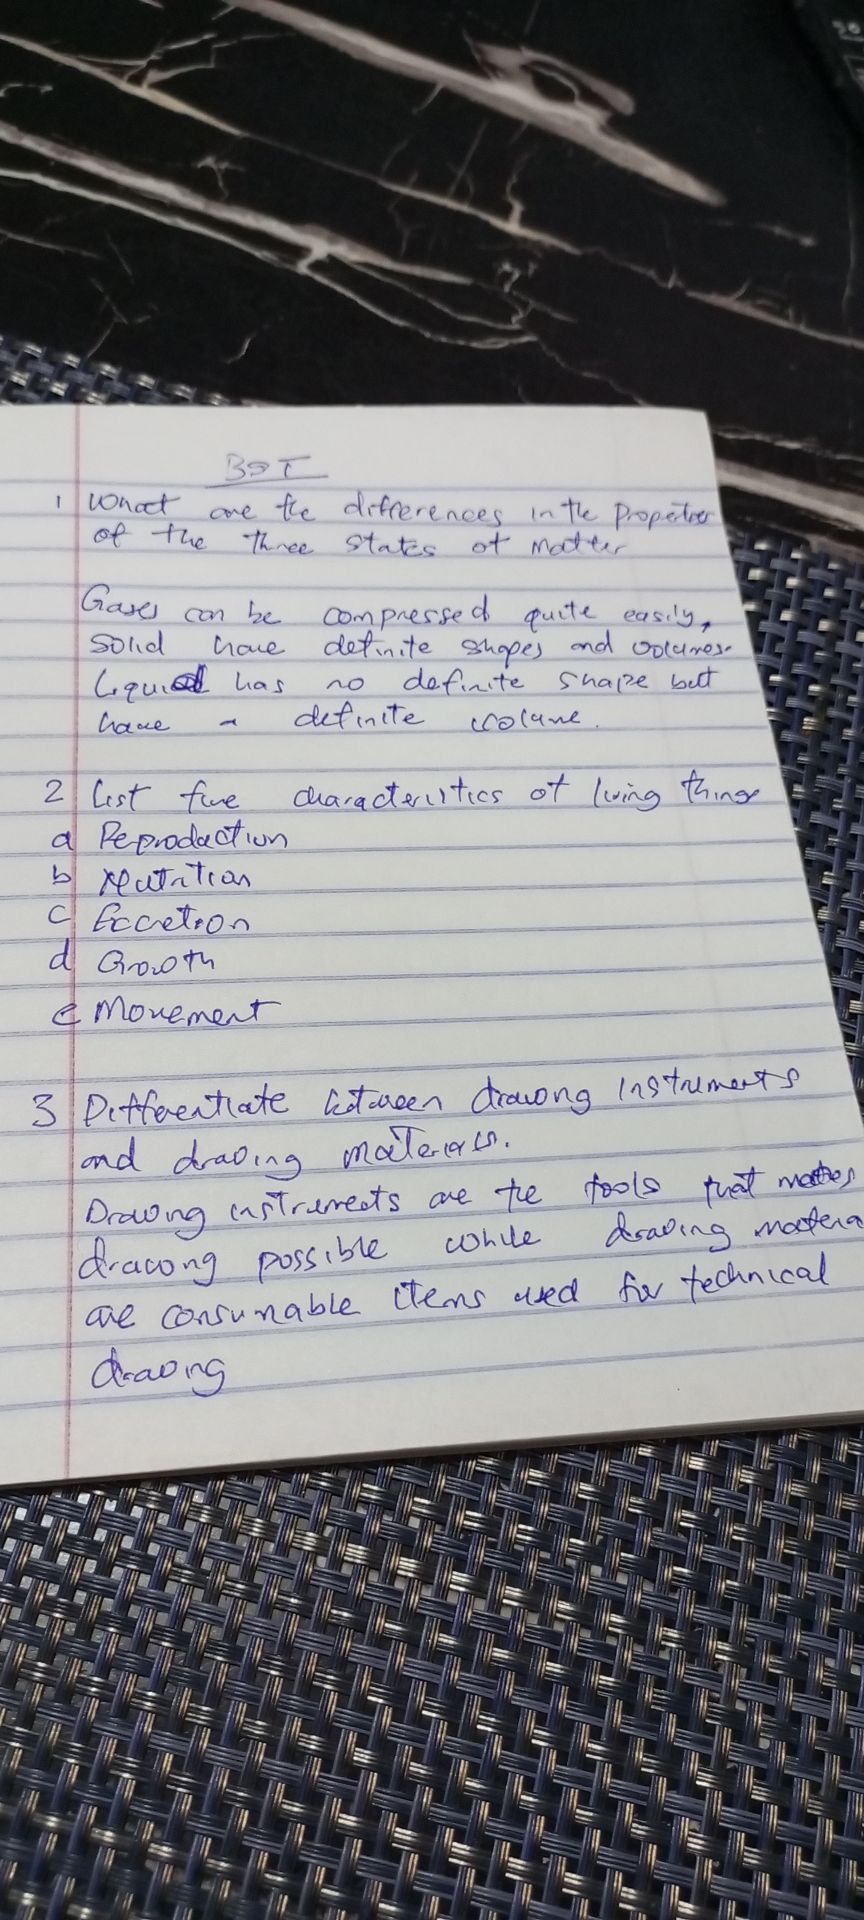 BST
1 What are the differences in the Propeties
of the three states of matter
Gases can be compressed quite easily,
Solid have definite shapes and volumes.
Liquid has no definite shape but
have a definite volume.
2 List five characteristics of living things
a Reproduction
b Nutrition
c Excretion
d Growth
e Movement
3 Differentiate between drawing instruments
and drawing materials.
Drawing instruments are the tools that makes
drawing possible while drawing materia
are consumable items used for technical
drawing